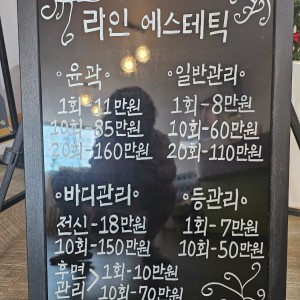 라인 에스테틱
◦윤곽◦
1회-11만원
10회-85만원
20회-160만원
◦일반관리◦
1회-8만원
10회-60만원
20회-110만원
◦바디관리◦
전신-18만원
10회-150만원
후면 관리 > 1회-10만원
10회-70만원
◦등관리◦
1회-7만원
10회-50만원